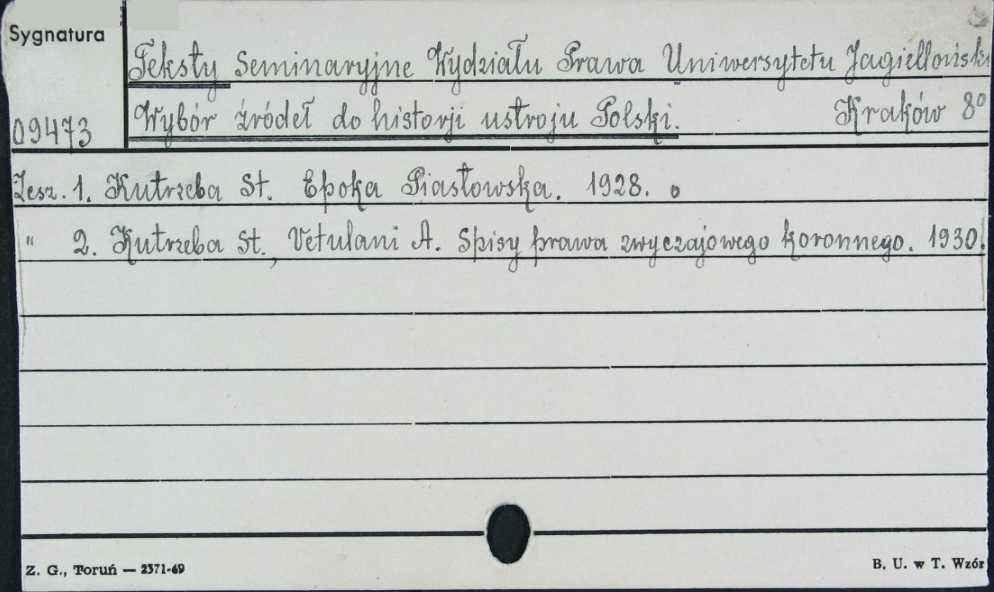 Sygnatura
Teksty Seminaryjne Wydziału Prawa Uniwersytetu Jagiellońsk
09473
Wybór źródeł do historji ustroju Polski. Kraków 8°
Zesz. 1. Kutrzeba St. Epoka Piastowska. 1928.
" 2. Kutrzeba St., Vetulani A. Spisy prawa zwyczajowego koronnego. 1930.
Z. G., Toruń — 2371-69
B. U. w T. Wzór